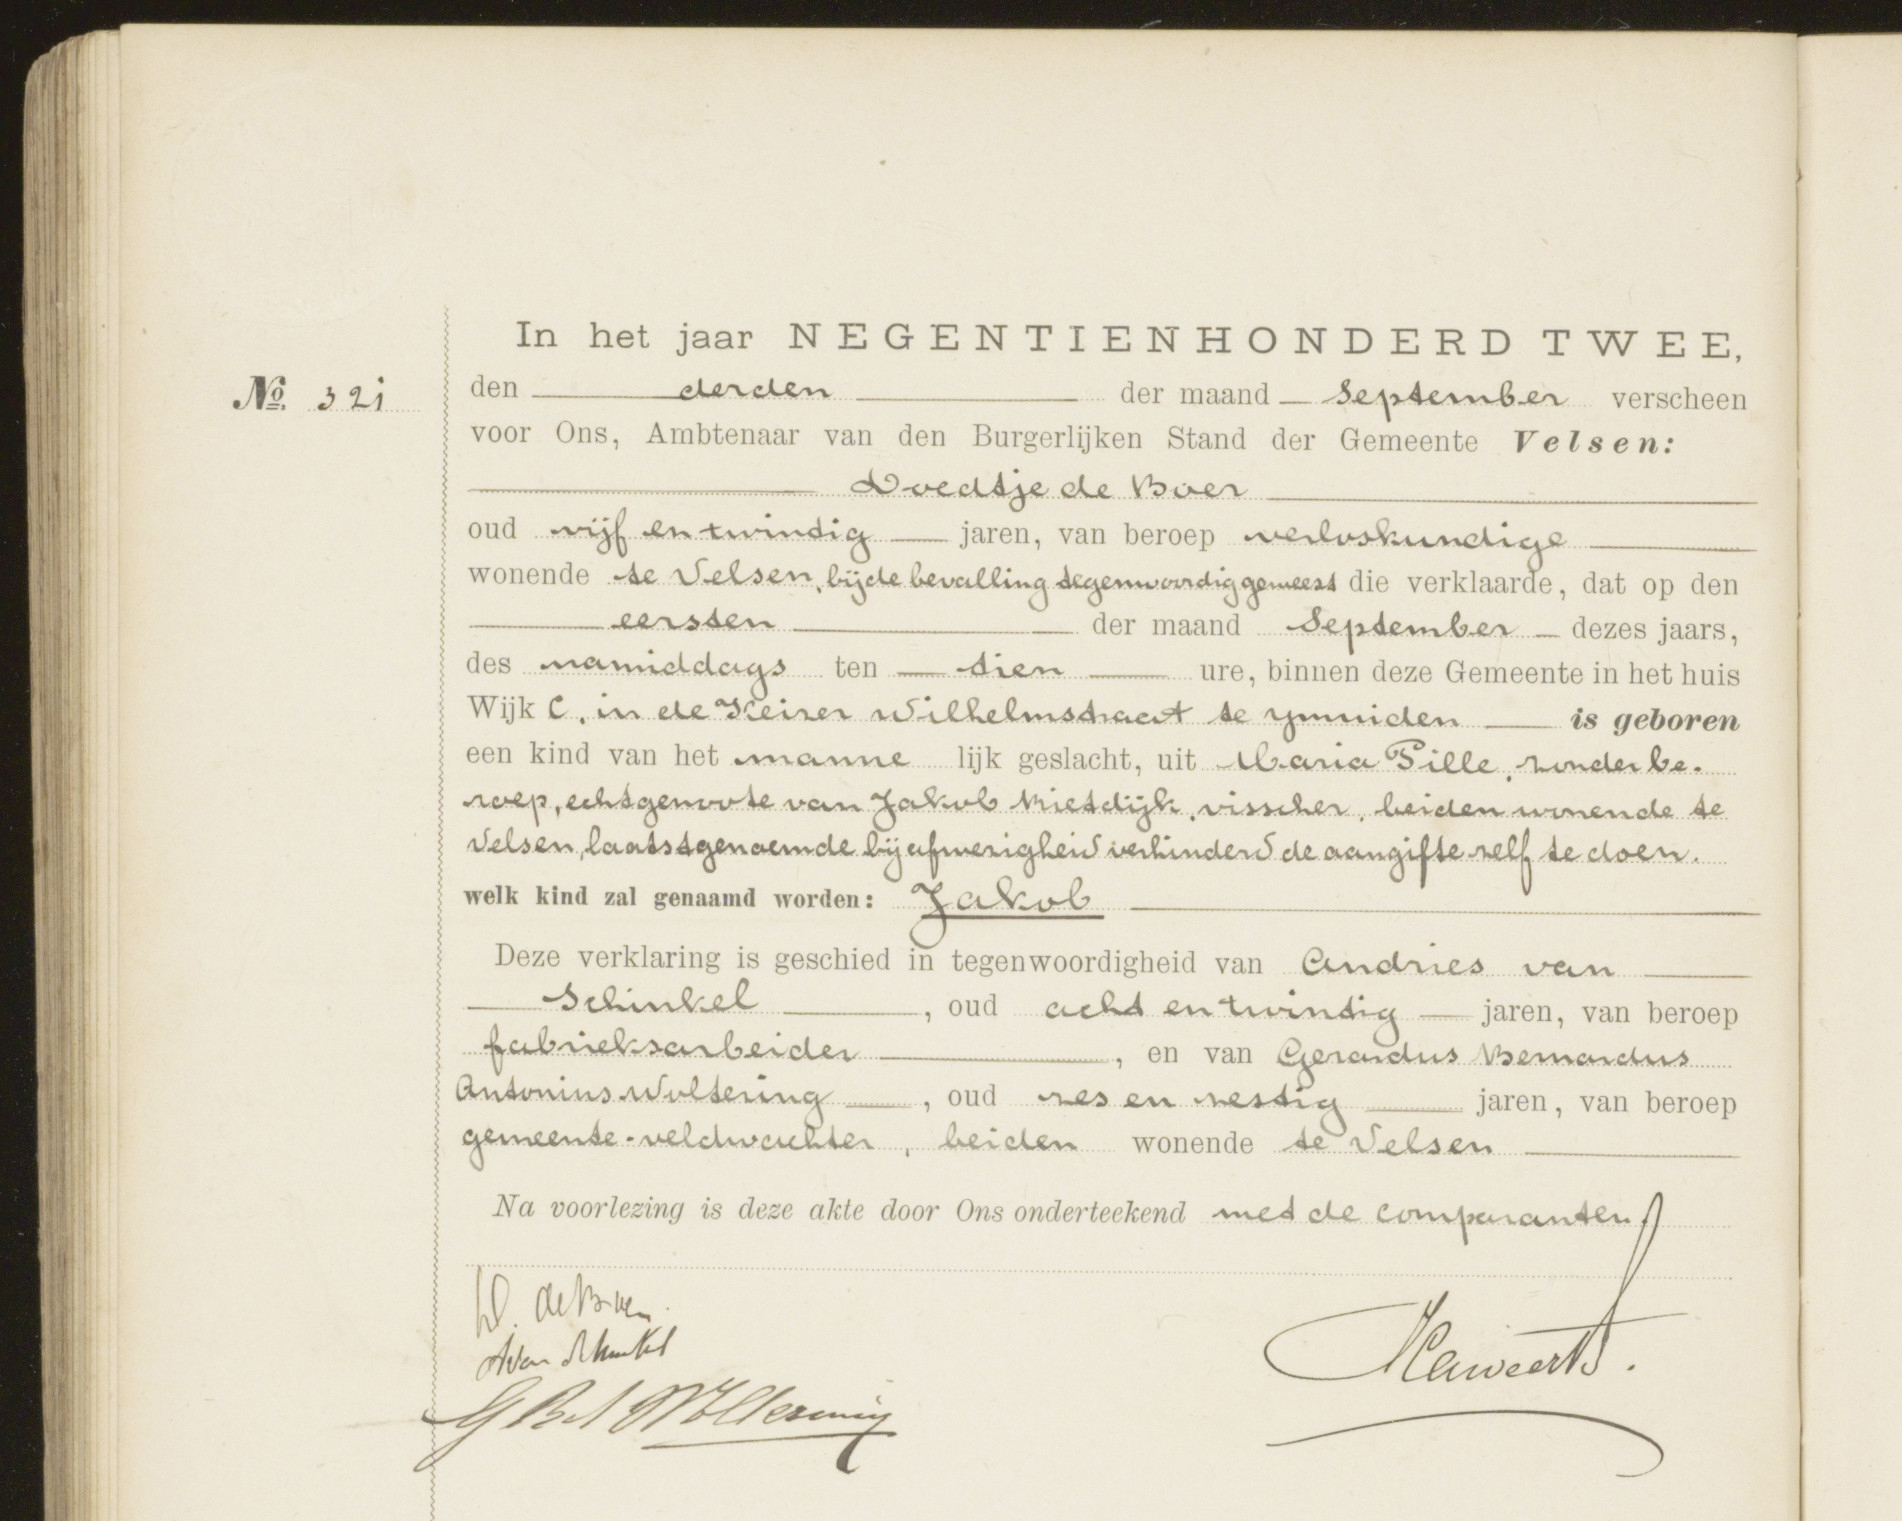 In het jaar NEGENTIENHONDERD TWEE,
No. 321
den derden der maand September verscheen
voor Ons, Ambtenaar van den Burgerlijken Stand der Gemeente Velsen:
Doedtje de Boer
oud vijf en twindig jaren, van beroep verloskundige
wonende te Velsen, bij de bevalling tegenwoordig geweest die verklaarde, dat op den
eersten der maand September dezes jaars,
des namiddags ten tien ure, binnen deze Gemeente in het huis
Wijk C, in de Keizer Wilhelmstraat te Ymuiden is geboren
een kind van het manne lijk geslacht, uit Maria Pille, zonder be-
roep, echtgenoote van Jakob Rietdijk, visscher, beiden wonende te
Velsen, laatstgenoemde bij afwezigheid verhinderd de aangifte zelf te doen.
welk kind zal genaamd worden: Jakob
Deze verklaring is geschied in tegenwoordigheid van Andries van
Schinkel, oud acht en twindig jaren, van beroep
fabrieksarbeider, en van Gerardus Bernardus
Antonius Woltering, oud zes en zestig jaren, van beroep
gemeente-veldwachter, beiden wonende te Velsen
Na voorlezing is deze akte door Ons onderteekend met de comparanten.
D. de Boer
A van Schinkel
G B A Woltering